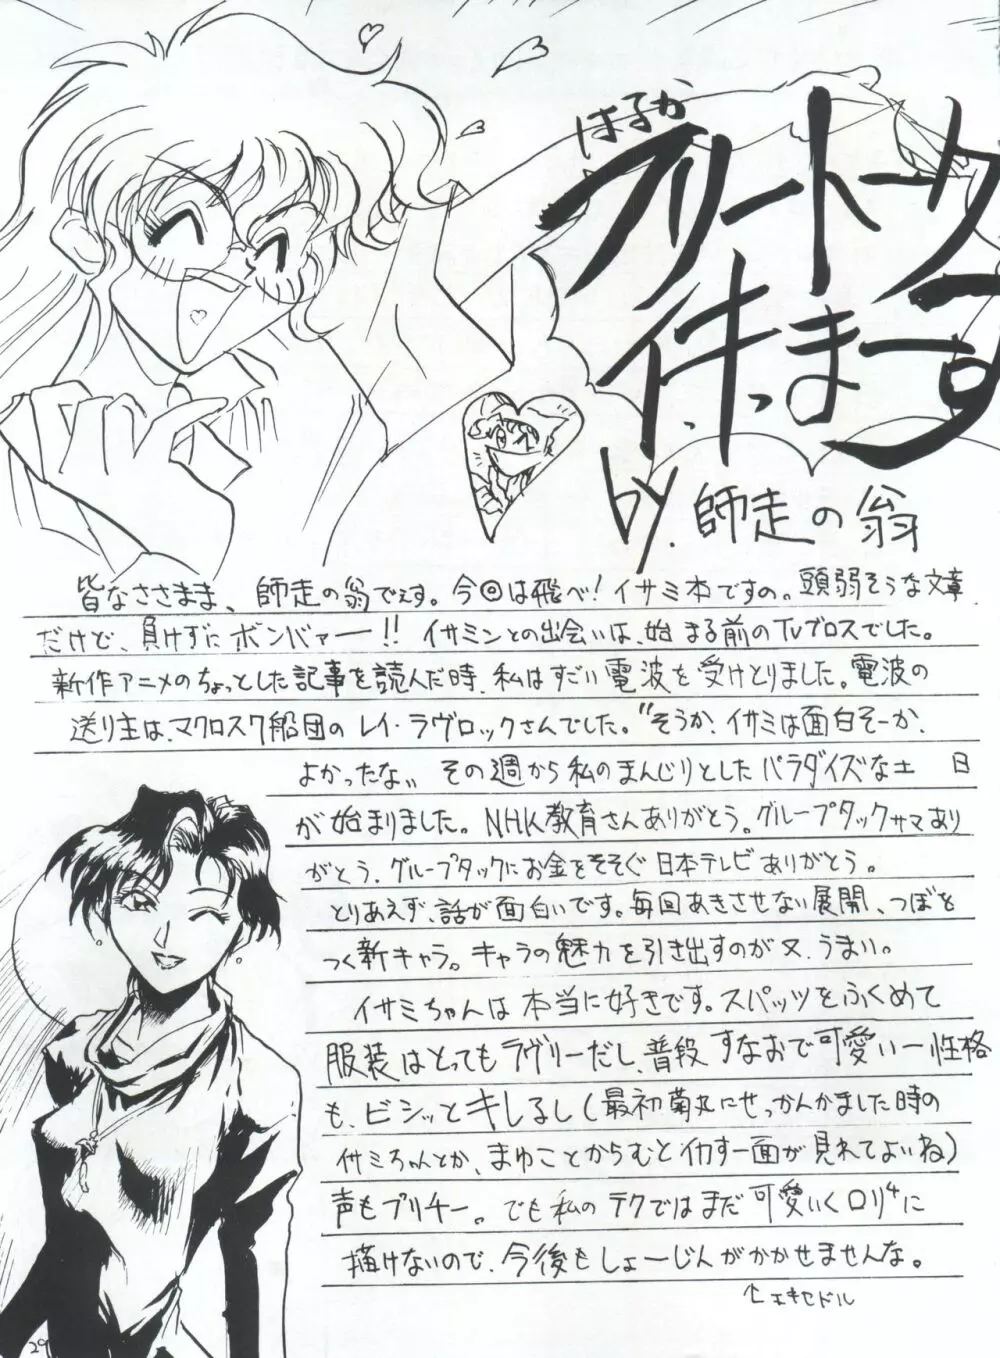 はるか
フリートーク
イ、キ、っまーす
by. 師走の翁
皆なささまま、師走の翁でぇす。今回は飛べ!イサミ本ですの。頭弱そうな文章
だけど、負けずにボンバァー!! イサミンとの出会いは、始まる前のTVブロスでした。
新作アニメのちょっとした記事を読んだ時、私はすごい電波を受けとりました。電波の
送り主は、マクロス7船団のレイ・ラヴロックさんでした。"そうか、イサミは面白そーか、
よかったな〟 その週から私のまんじりとしたパラダイズな土 日
が始まりました。NHK教育さんありがとう。グループタックサマあり
がとう、グループタックにお金をそそぐ日本テレビありがとう。
とりあえず、話が面白いです。毎回あきさせない展開、つぼを
つく新キャラ。キャラの魅力を引き出すのが又、うまい。
イサミちゃんは本当に好きです。スパッツをふくめて
服装はとってもラヴリーだし、普段すなおで可愛いー性格
も、ビシッとキしるし(最初菊丸にせっかんかました時の
イサミちゃんとか、まゆことからむとイカす一面が見れてよいね)
声もプリチー。でも私のテクではまだ可愛いくロリィに
描けないので、今後もしょーじんがかかせませんな。
↑エキセドル
29